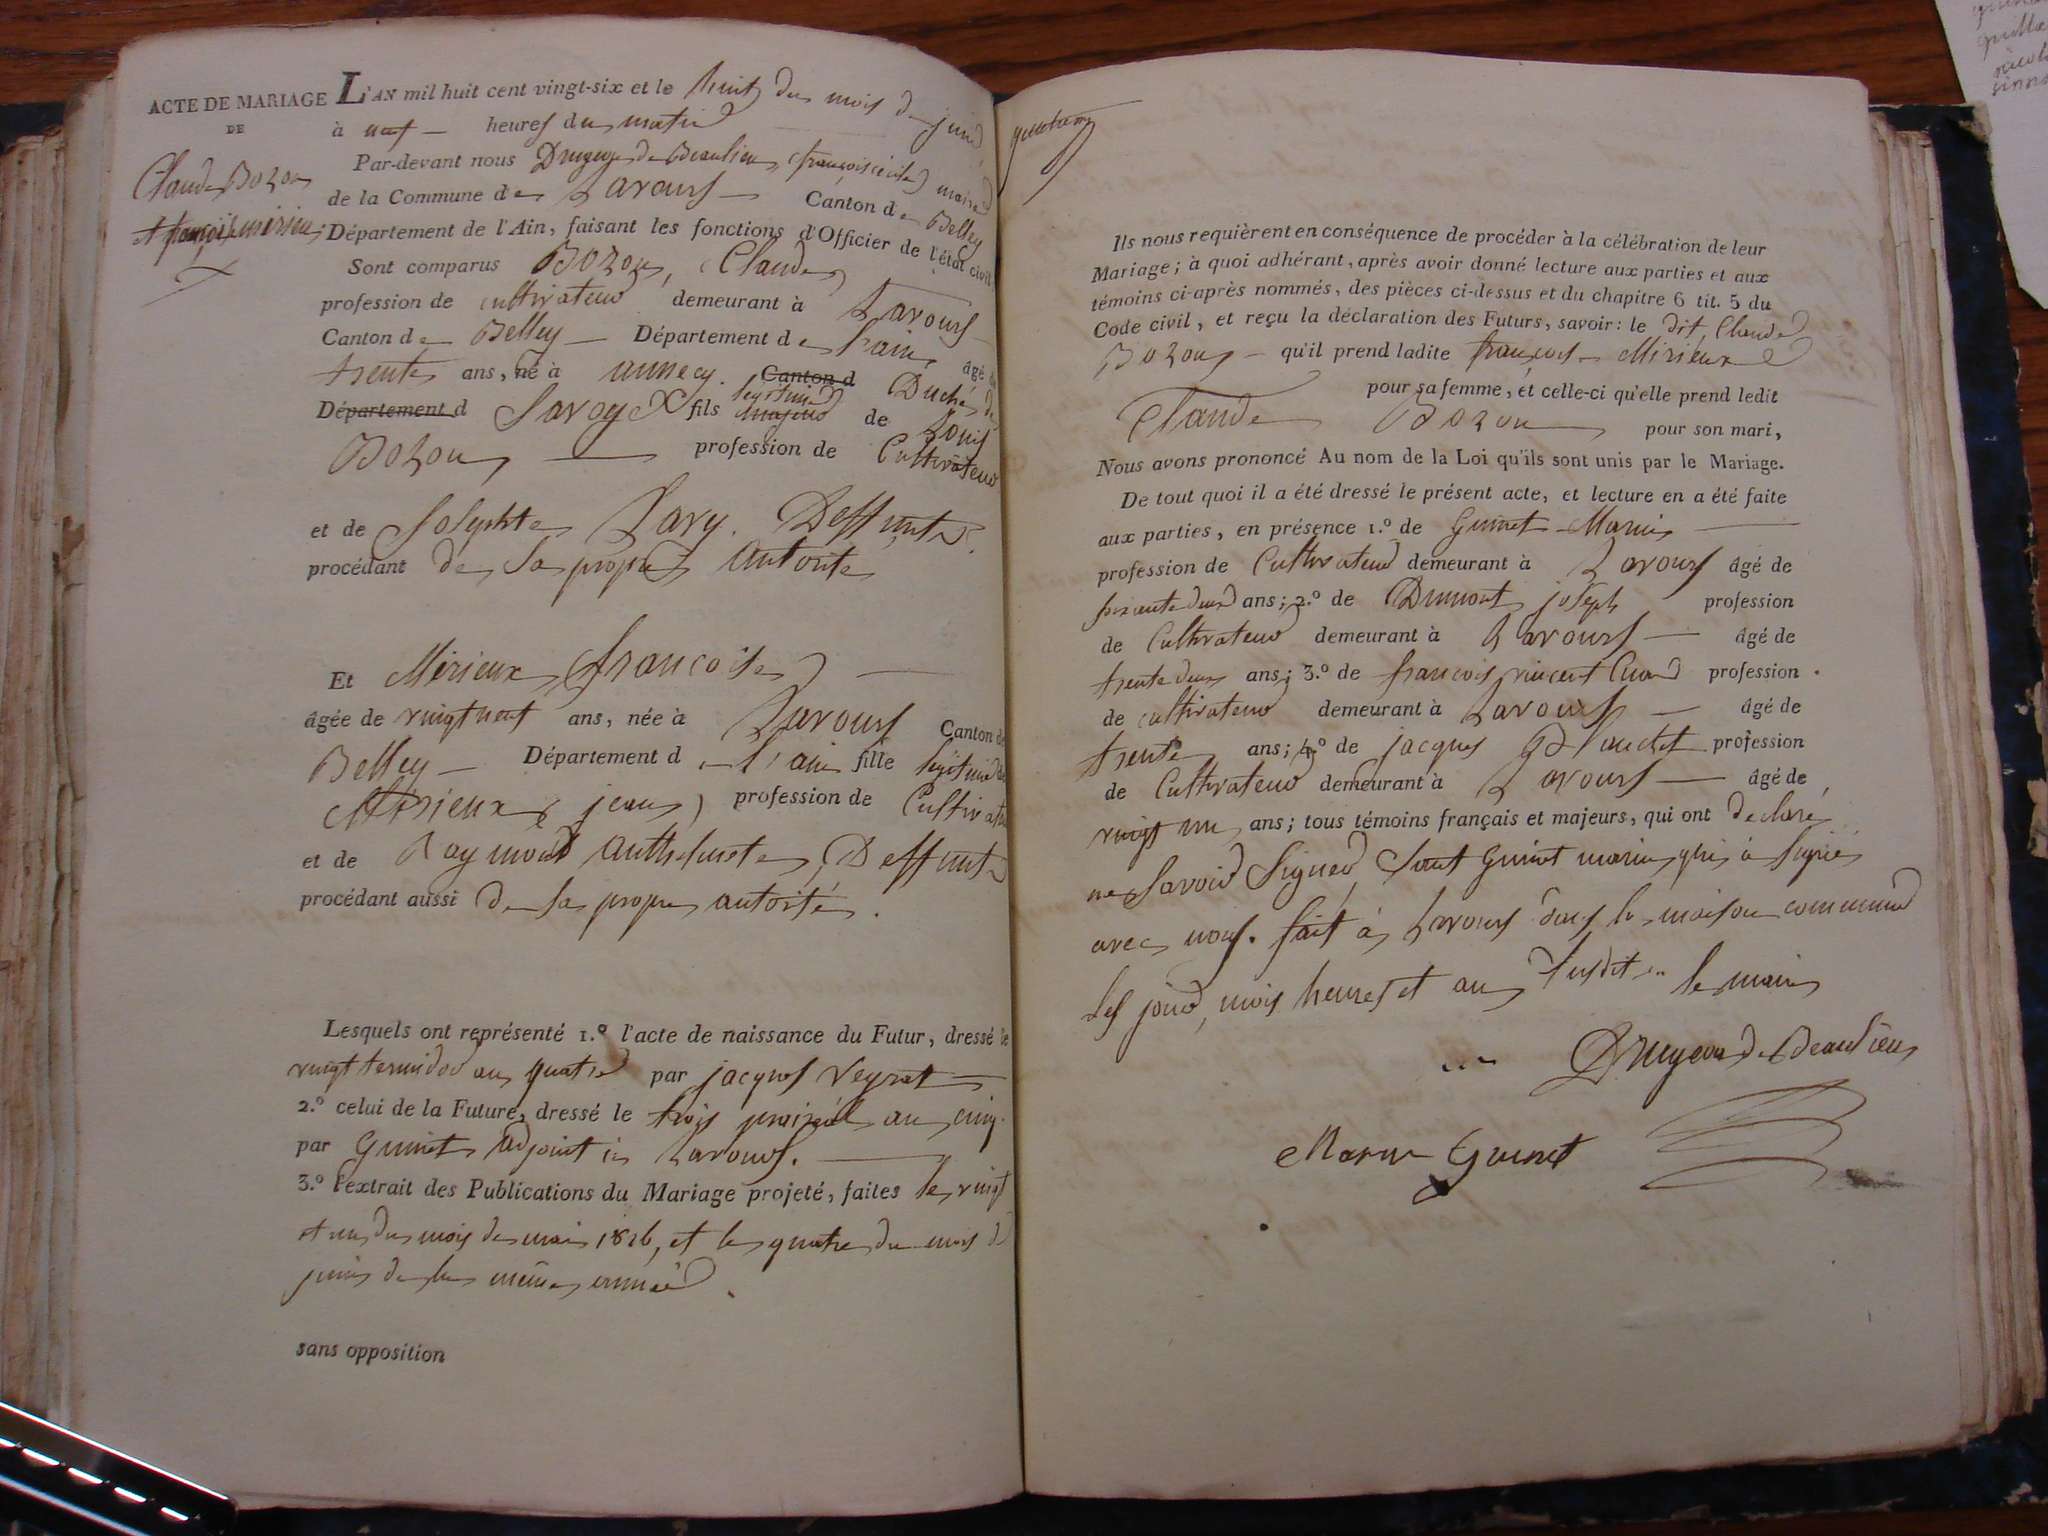 ACTE DE MARIAGE
DE
Claude Bozon
et françoise mérieux
L'AN mil huit cent vingt-six et le huit du mois de juin
à neuf heures du matin
Par-devant nous Drujeon de Beaulieu (françois maire
de la Commune de Lavours Canton de Belley
Département de l'Ain, faisant les fonctions d'Officier de l'état civil
Sont comparus Bozon, Claude,
profession de cultivateur demeurant à Lavours
Canton de Belley Département de l'ain âgé de
trente ans, né à annecy. Canton d Duché de
Département d Savoye fils légitime majeur de Louis
Bozon profession de Cultivateur
et de Josephte Lavy. Deffunte.
procédant de Sa propre autorité
Et Mérieux françoise
âgée de vingt neuf ans, née à Lavours Canton de
Belley Département d l'ain fille légitime de
Mérieux, jean, profession de Cultivateur
et de Raymond Anthelmete, Deffunte
procédant aussi de Sa propre autorité.
Lesquels ont représenté 1.º l'acte de naissance du Futur, dressé le
vingt termidor an quatre par jacques Veyrat
2.º celui de la Future, dressé le trois prairial an cinq.
par Guinet adjoint à Lavours.
3.º l'extrait des Publications du Mariage projeté, faites le vingt
et un du mois de mai 1826, et le quatre du mois de
juin de la même année.
sans opposition
Ils nous requièrent en conséquence de procéder à la célébration de leur
Mariage; à quoi adhérant, après avoir donné lecture aux parties et aux
témoins ci-après nommés, des pièces ci-dessus et du chapitre 6 tit. 5 du
Code civil, et reçu la déclaration des Futurs, savoir: le dit, Claude
Bozon qu'il prend ladite françoise Mérieux
pour sa femme, et celle-ci qu'elle prend ledit
Claude Bozon pour son mari,
Nous avons prononcé Au nom de la Loi qu'ils sont unis par le Mariage.
De tout quoi il a été dressé le présent acte, et lecture en a été faite
aux parties, en présence 1.º de Guinet Marin
profession de Cultivateur demeurant à Lavours âgé de
ans; 2.º de Dumont joseph profession
de Cultivateur demeurant à Lavours âgé de
trente deux ans; 3.º de françois vincent profession
de cultivateur demeurant à Lavours âgé de
trente ans; 4.º de jacques profession
de Cultivateur demeurant à Lavours âgé de
vingt un ans; tous témoins français et majeurs, qui ont declaré
ne Savoir Signer, Sauf Guinet marin qui a Signé
avec nous. fait à Lavours dans la maison commune
Les jour, mois heures et an Susdit le maire
Drujeon de Beaulieu
Marin Guinet